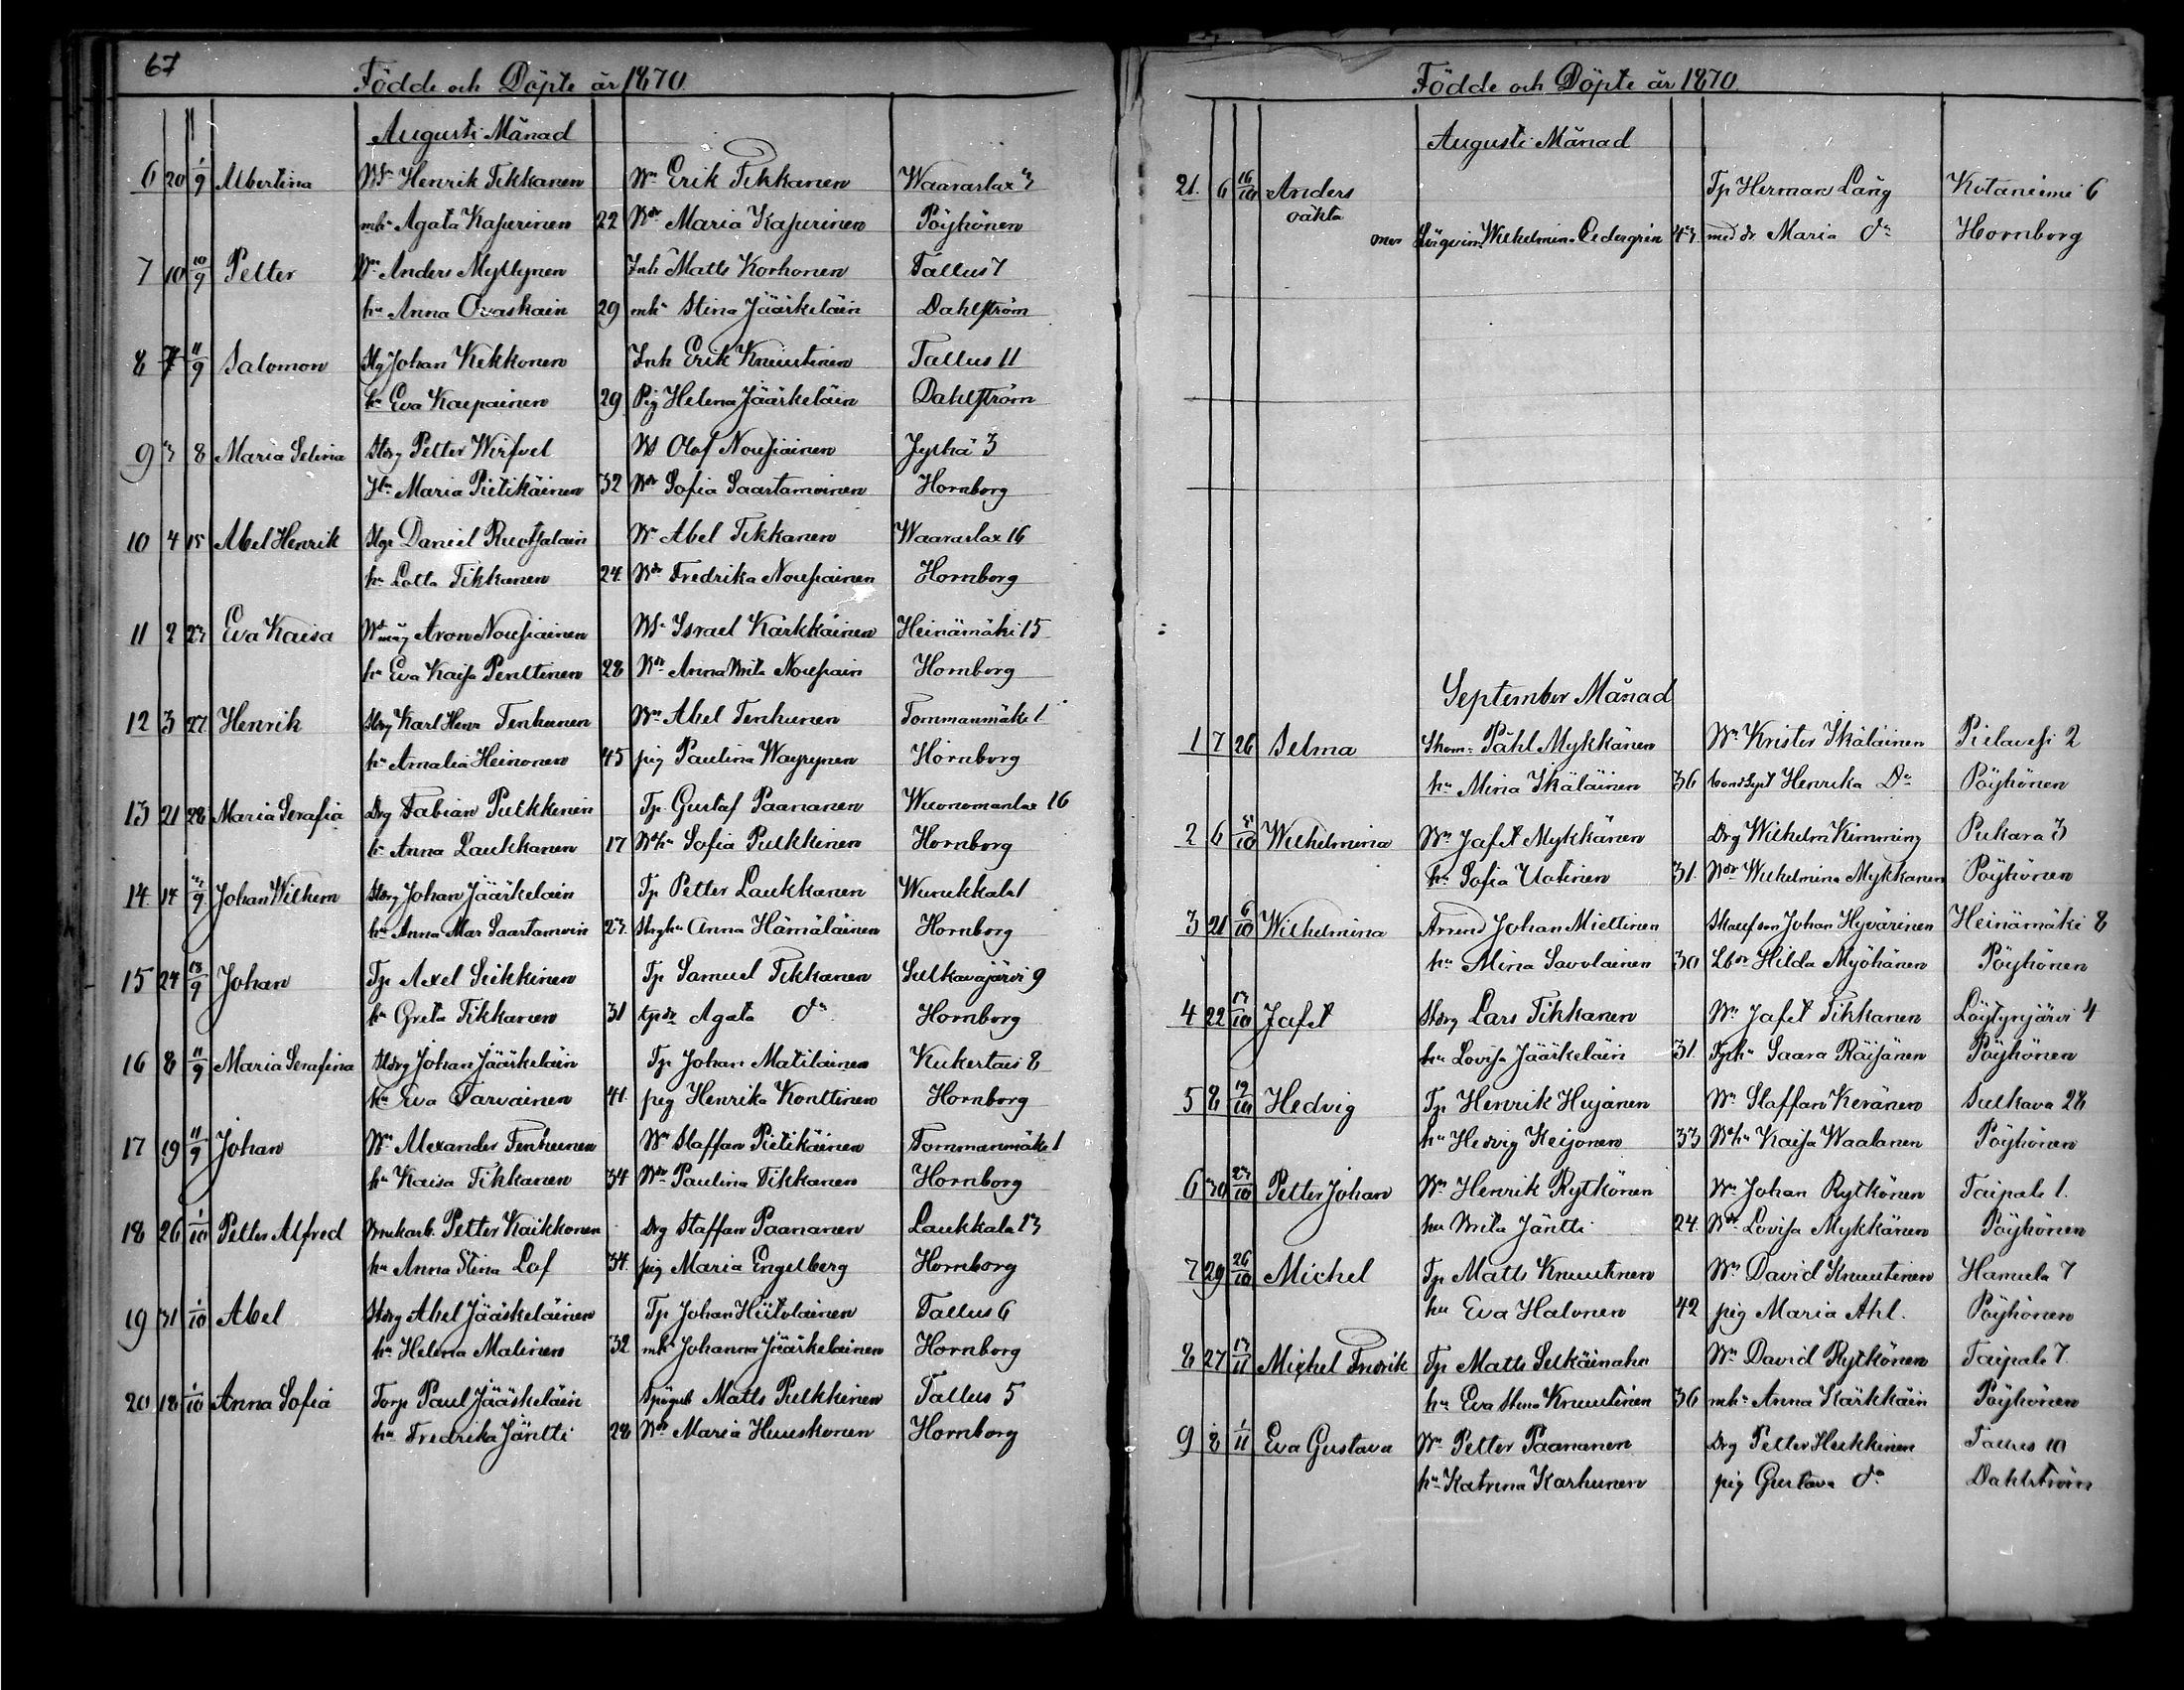 67
Födde och Döpte år 1870.
Augusti Månad
6 20 1/9 Albertina Henrik Tikkanen Wn Erik Tikkanen Waaraslax 3
mhu Agata Kasurinen 22 Wdr Maria Kasurinen Pöyhönen
7 10 10/9 Petter Wn Anders Myllynen Inh Matts Korhonen Tallus 7
hu Anna Ovaskain 29 mhu Stina Jääskeläin Dahlström
8 7 11/9 Salomon Johan Kekkonen Inh Erik Knuutinen Tallus 11
hu Eva Kaipainen 29 Pig Helena Jääskeläin Dahlström
9 3 8 Maria Selina Petter Wirfvel Olof Nousiainen Jylhä 3
Maria Pietikäinen 32 Wdr Sofia Saastamoinen Hornborg
10 4 15 Abel Henrik Daniel Ruotsalain Wn Abel Tikkanen Waaraslax 16
hu Lotta Tikkanen 24 Wdr Fredrika Nousiainen Hornborg
11 2 23 Eva Kaisa Aron Nousiainen Israel Kärkkäinen Heinämäki 15
hu Eva Kajsa Penttinen 28 Wdr Anna Brita Nousiain Hornborg
12 3 27 Henrik Karl Henr Tenhunen Wn Abel Tenhunen Tommanmäki 1
hu Amalia Heinonen 45 pig Paulina Wäyrynen Hornborg
13 21 28 Maria Serafia Drg Fabian Pulkkinen Tp. Gustaf Paananen Wuonomanlax 16
hu Anna Laukkanen 17 Sofia Pulkkinen Hornborg
14 14 Johan Wilhem Johan Jääskeläin Tp Petter Laukkanen
hu Anna Mar Saastamoin 23. Anna Hämäläinen Hornborg
15 24 Johan Tp Axel Seikkinen Tp Samuel Tikkanen Sulkavajärvi 9
hu Greta Tikkanen 31 Agata do Hornborg
16 8 11/9 Maria Serafina Johan Jääskeläin Tp Johan Matilainen Kukertais 8
hu Eva Tarvainen 41. pig Henrika Konttinen Hornborg
17 19 11/9 Johan Wn Alexander Tenhunen Wn Staffan Pietikäinen Tommanmäki 1
hu Kaisa Tikkanen 34 Wdr Paulina Tikkanen Hornborg
18 26 1/10 Petter Alfred Petter Kaikkonen Drg Staffan Paananen Laukkala 13
hu Anna Stina Lof 34. pig Maria Engelberg Hornborg
19 31 1/10 Abel Abel Jääskeläinen Tp Johan Hiitolainen Tallus 6
hu Helena Malinen 32 mhu Johanna Jääskeläinen Hornborg
20 18 1/10 Anna Sofia Torp Paul Jääskeläin Matts Pulkkinen Tallus 5
hu Fredrika Jäntti 28 Wdr Maria Huuskonen Hornborg
Födde och Döpte år 1870.
Augusti Månad
21. 6 16/10 Anders Tp Herman Lång Kotaniemi 6
oäkta
Wilhelmina Cedergren 43 Maria do Hornborg
September Månad
1 7 26 Selma Påhl Mykkänen Wn Krister Ikäläinen Pielavesi 2
hu Mina Ikäläinen 36 Henrika Do Pöyhönen
2 6 Wilhelmina Wn Jafet Mykkänen Drg Wilhelm Kimming Pukara 3
hu Sofia Uotinen 31. Wdr Wilhelmina Mykkänen Pöyhönen
3 21 6/10 Wilhelmina Arrend Johan Miettinen Johan Hyvärinen Heinämäki 8
hu Mina Savolainen 30 Hilda Myöhänen Pöyhönen
4 22 13/10 Jafet Lars Tikkanen Wn Jafet Tikkanen Löytynjärvi 4
hu Lovisa Jääskeläin 31. Saara Räisänen Pöyhönen
5 8 19/10 Hedvig Tp Henrik Hujanen Wn Staffan Keränen Sulkava 28
hu Hedvig Keijonen 33 Kaisa Waalanen Pöyhönen
6 30 23/10 Petter Johan Wn Henrik Rytkönen Wn Johan Rytkönen Taipale 1.
hu Brita Jäntti 24. Wdr Lovisa Mykkänen Pöyhönen
7 29 26/10 Michel Tp Matts Knuutinen Wn David Knuutinen Hamula 7
hu Eva Halonen 42 pig Maria Ahl. Pöyhönen
8 27 13/11 Michel Fredrik Tp Matts Selkäinaho Wn David Rytkönen Taipale 7
hu Eva Stina Knuutinen 36 mhu Anna Kärkkäin Pöyhönen
9 8 1/11 Eva Gustava Wn Petter Paananen Drg Petter Heikkinen Tallus 10
hu Katrina Karhunen pig Gustava do Dahlström